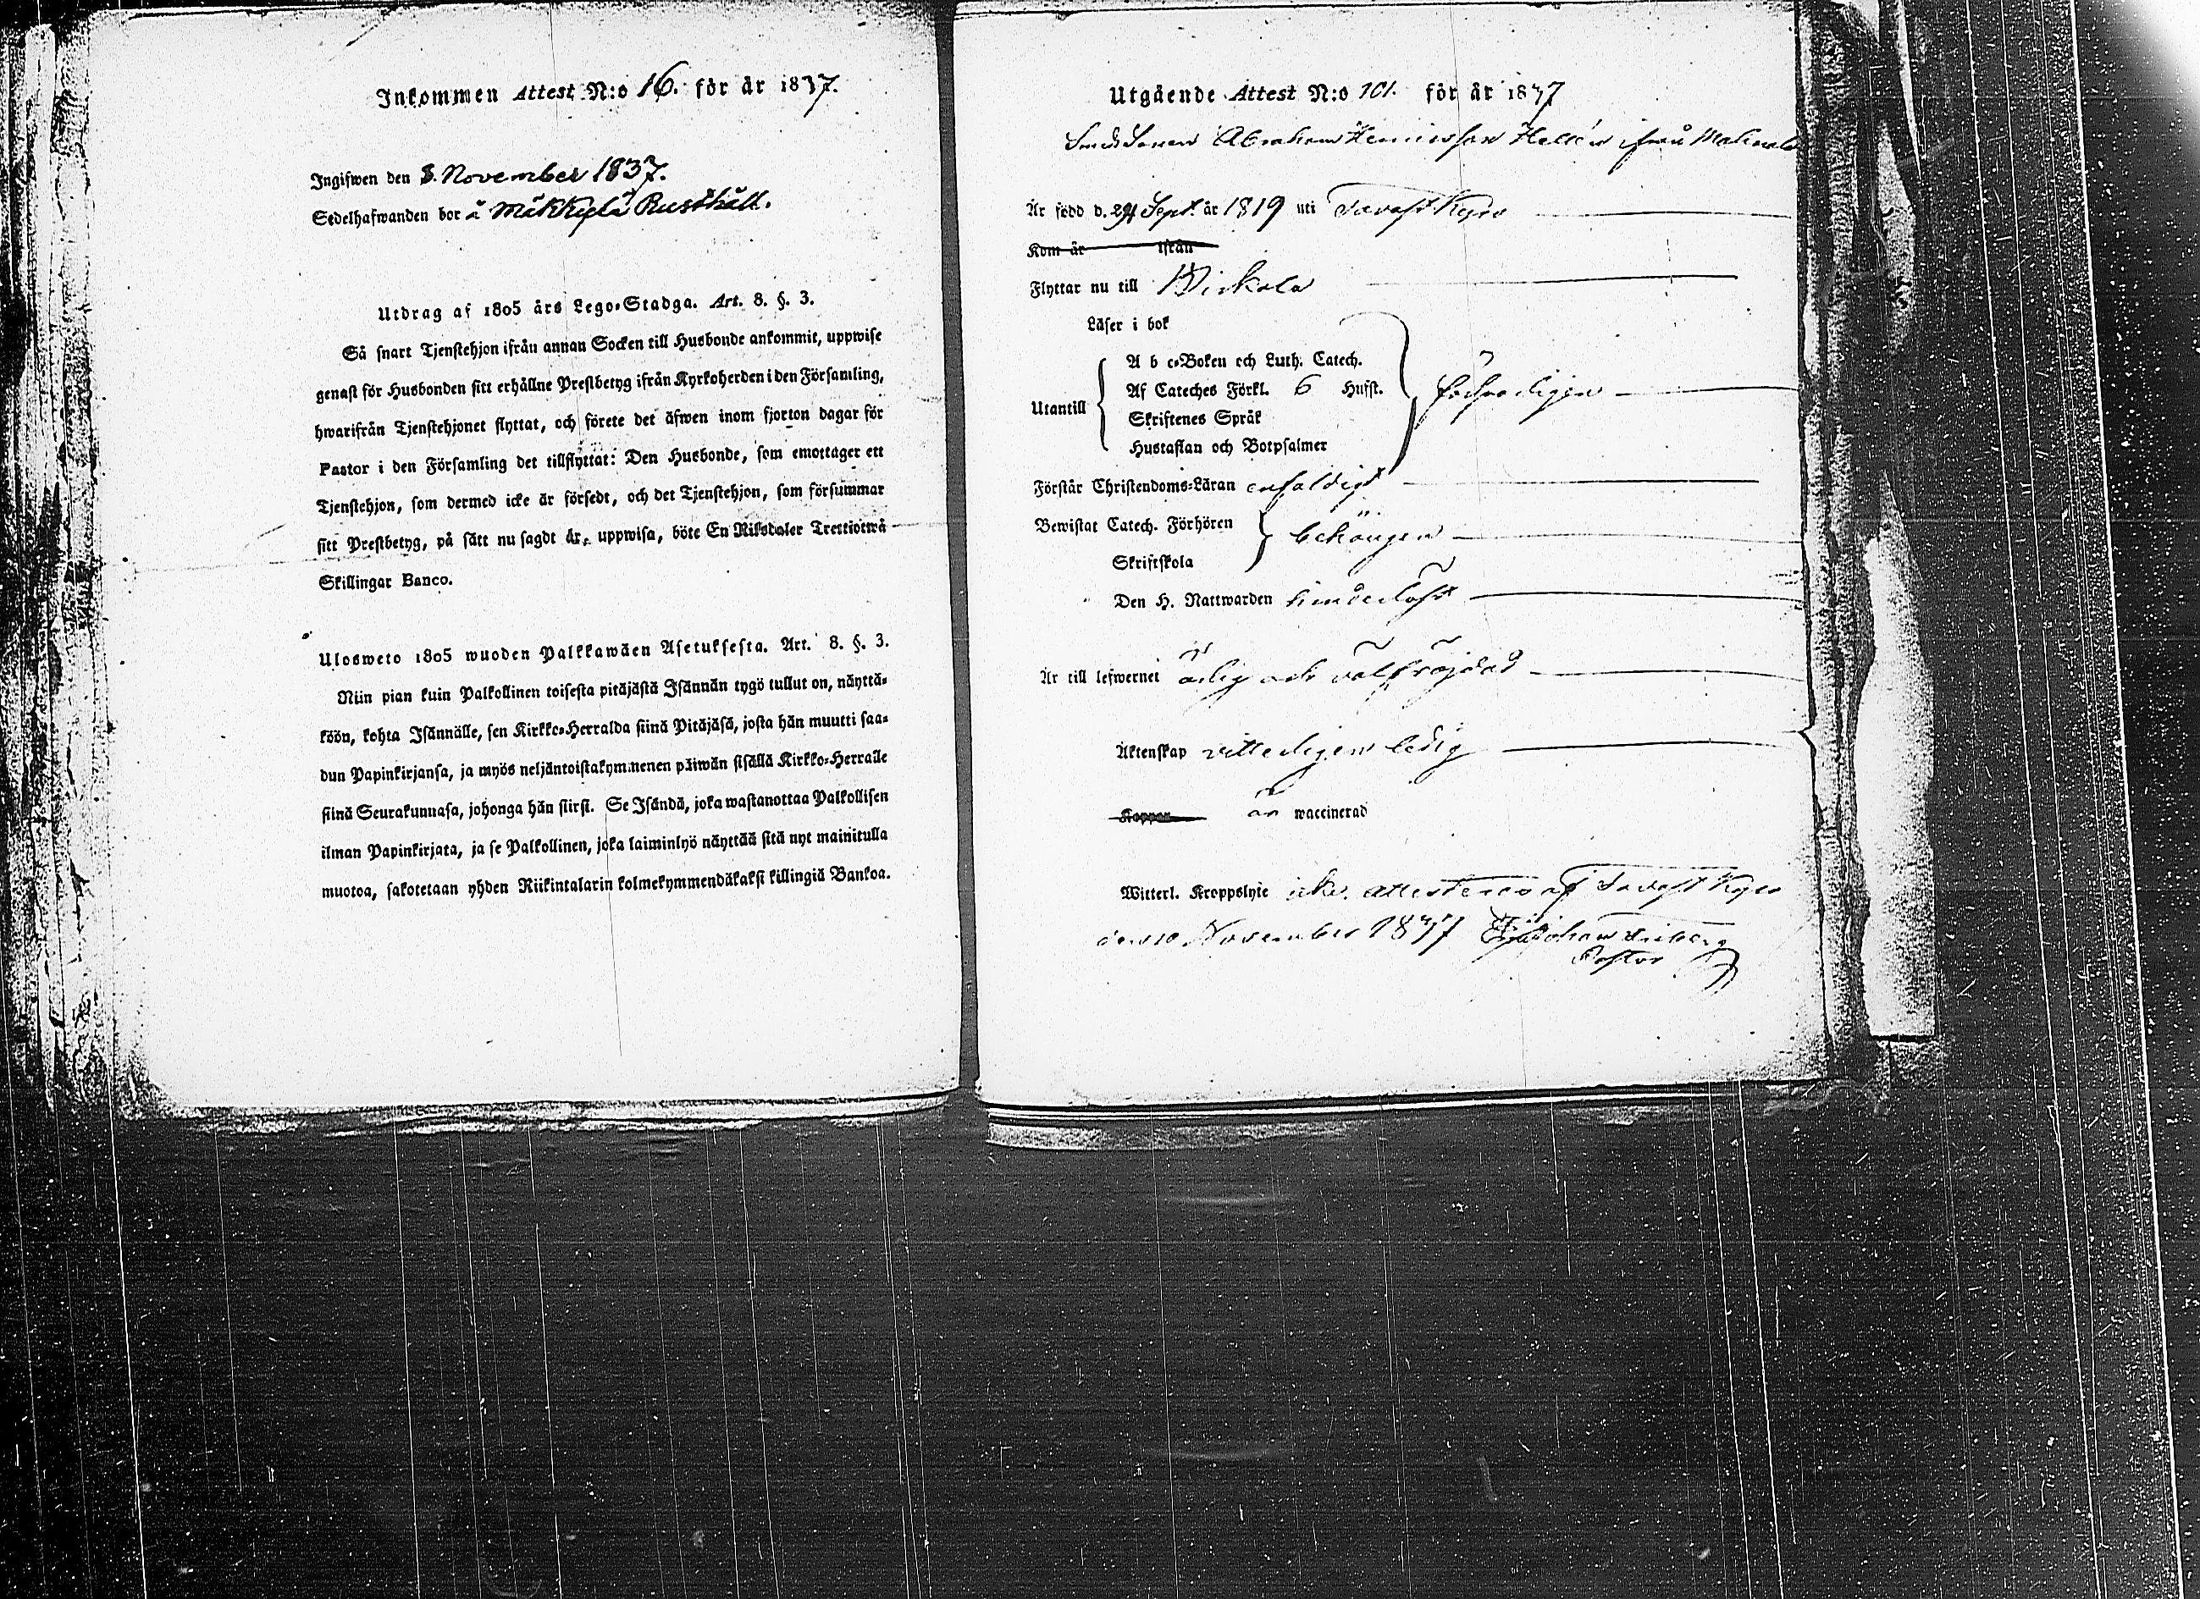 Inkommen Attest N:o 16. för år 1837.
Ingifwen den 8. November 1837.
Sedelhafwanden bor å Mäkkylä Rusthåll.
Utdrag af 1805 års Lego-Stadga. Art. 8. §. 3.
Så snart Tjenstehjon ifrån annan Socken till Husbonde ankommit, uppwise
genast för Husbonden sitt erhållne Prestbetyg ifrån Kyrkoherden i den Församling,
hwarifrån Tjenstehjonet flyttat, och förete det äfwen inom fjorton dagar för
Pastor i den Församling det tillflyttat: Den Husbonde, som emottager ett
Tjenstehjon, som dermed icke är försedt, och det Tjenstehjon, som försummar
sitt Prestbetyg, på sätt nu sagdt är, uppwisa, böte En Riksdaler Trettiotwå
Skillingar Banco.
Ulosweto 1805 wuoden Palkkawäen Asetuksesta. Art. 8. §. 3.
Niin pian kuin Palkollinen toisesta pitäjästä Isännän tygö tullut on, näyttä-
köön, kohta Isännälle, sen Kirkko-Herralda siinä Pitäjäsä, josta hän muutti saa-
dun Papinkirjansa, ja myös neljäntoistakymmenen päiwän sisällä Kirkko-Herralle
siinä Seurakunnasa, johonga hän siirsi. Se Isändä, joka wastanottaa Palkollisen
ilman Papinkirjata, ja se Palkollinen, joka laiminlyö näyttää sitä nyt mainitulla
muotoa, sakotetaan yhden Riikintalarin kolmekymmendäkaksi killingiä Bankoa.
Utgående Attest N:o 101. för år 1837
Smeds Sonen Abraham Henricsson Hellén ifrån
Är född d. 29 Sept. år 1819 uti Tavast Kyro
Kom år ifrån
Flyttar nu till Birkala
Läser i bok
A b c-Boken och Luth. Catech.
Utantill Af Cateches Förkl. 6 Hufst. försvarligen
Skriftenes Språk
Hustaflan och Botpsalmer
Förstår Christendoms-Läran enfaldigt
Bewistat Catech. Förhören behörigen
Skriftskola
Den H. Nattwarden hinderlöst
Är till lefwernet ärlig och välfräjdad
Äktenskap vitterligen ledig
Koppor är waccinerad
Witterl. Kroppslyte icke. attesteras af Tavast Kyro
den 10 November 1837 Johan Friberg
Pastor